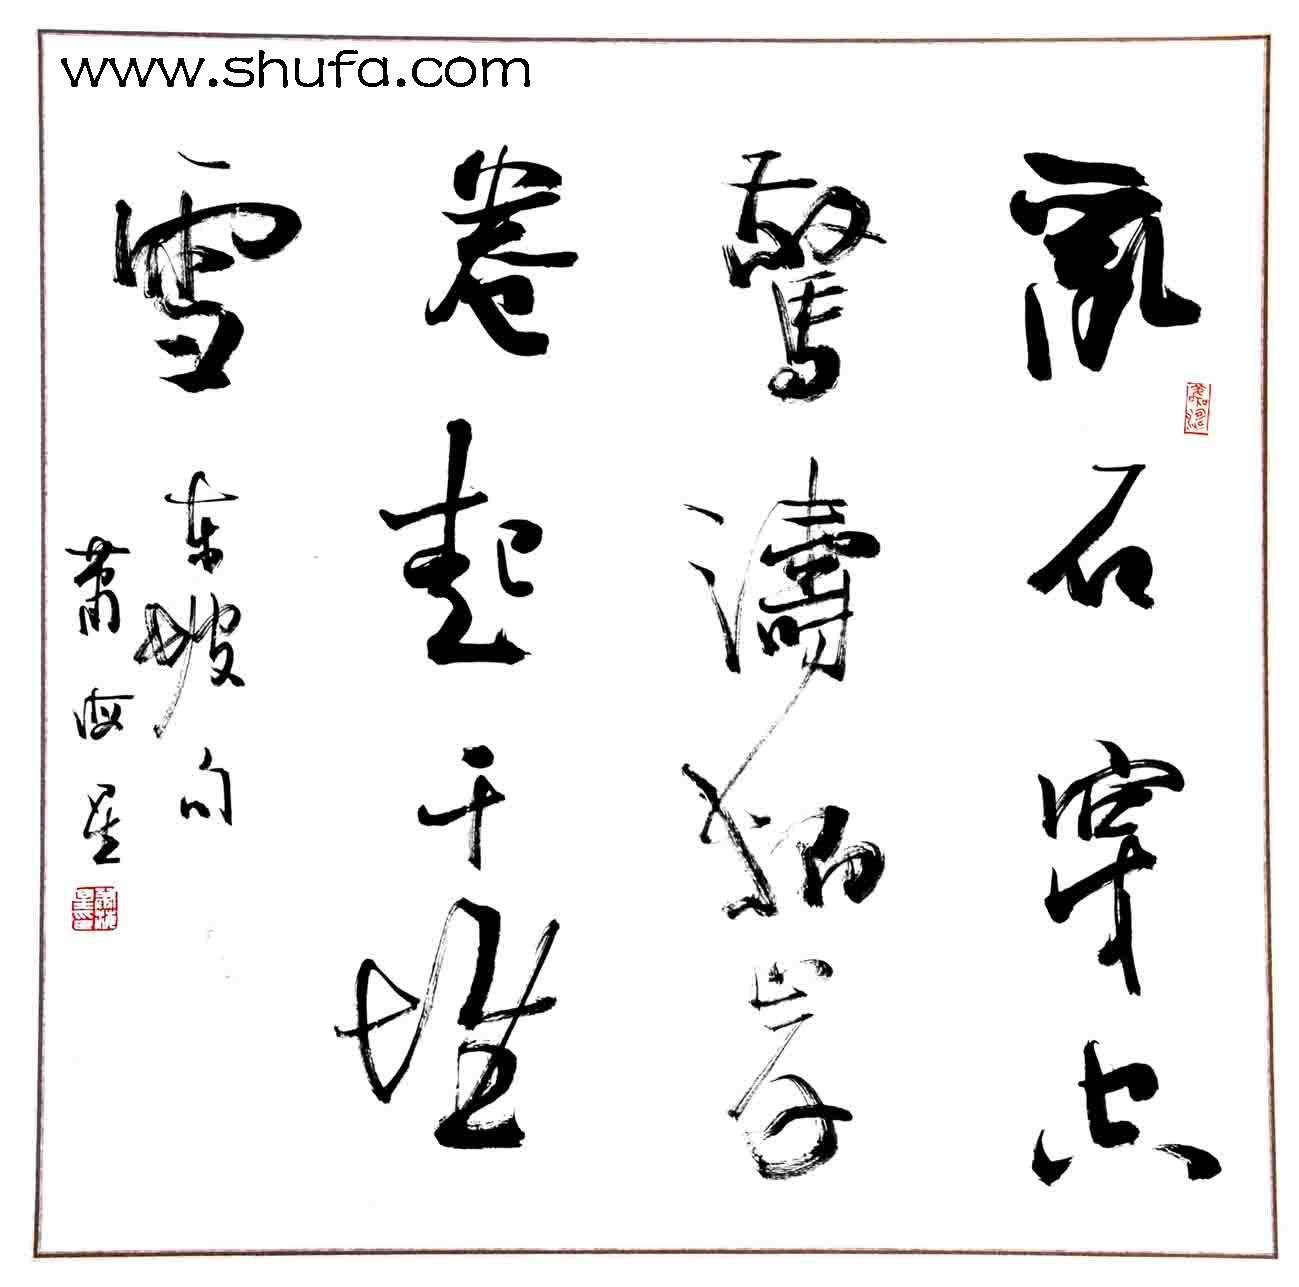 www.shufa.com
亂石穿空
驚濤拍岸
卷起千堆
雪 東坡句
蕭海星